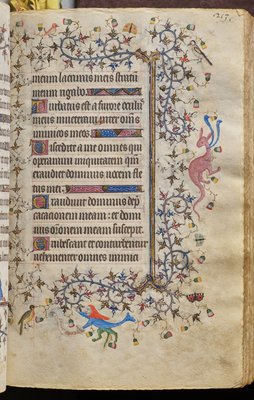 meam lacrimis meis stratum
meum rigabo.
Turbatus est a furore oculus
meus inueteraui inter omnes
inimicos meos.
Discedite a me omnes qui
operamini iniquitatem quoniam
exaudiuit dominus uocem fle
tus mei.
Exaudiuit dominus dep
cacionem meam : et domi
nus orationem meam suscepit.
Erubescant et conturbentur
uehementer omnes inimici